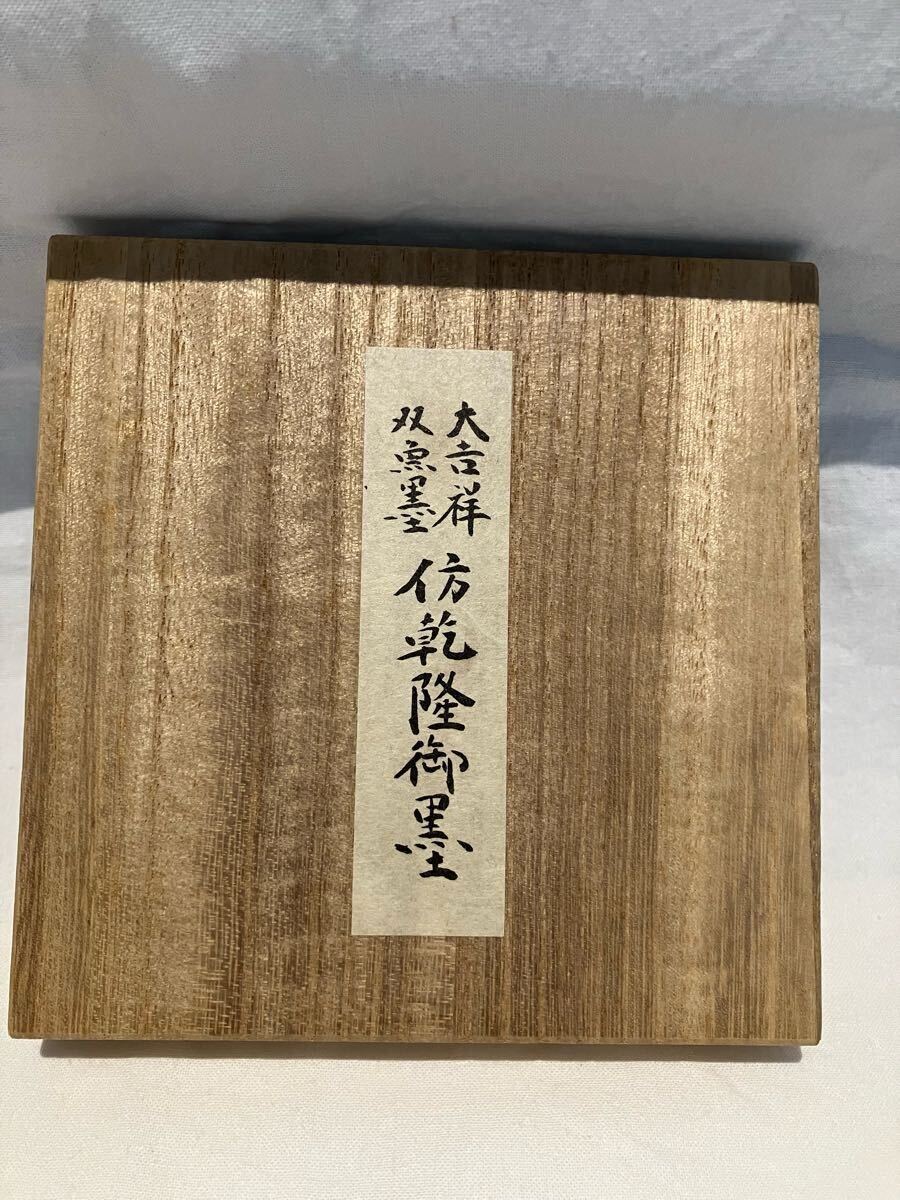 大吉祥
双魚墨
仿乾隆御墨